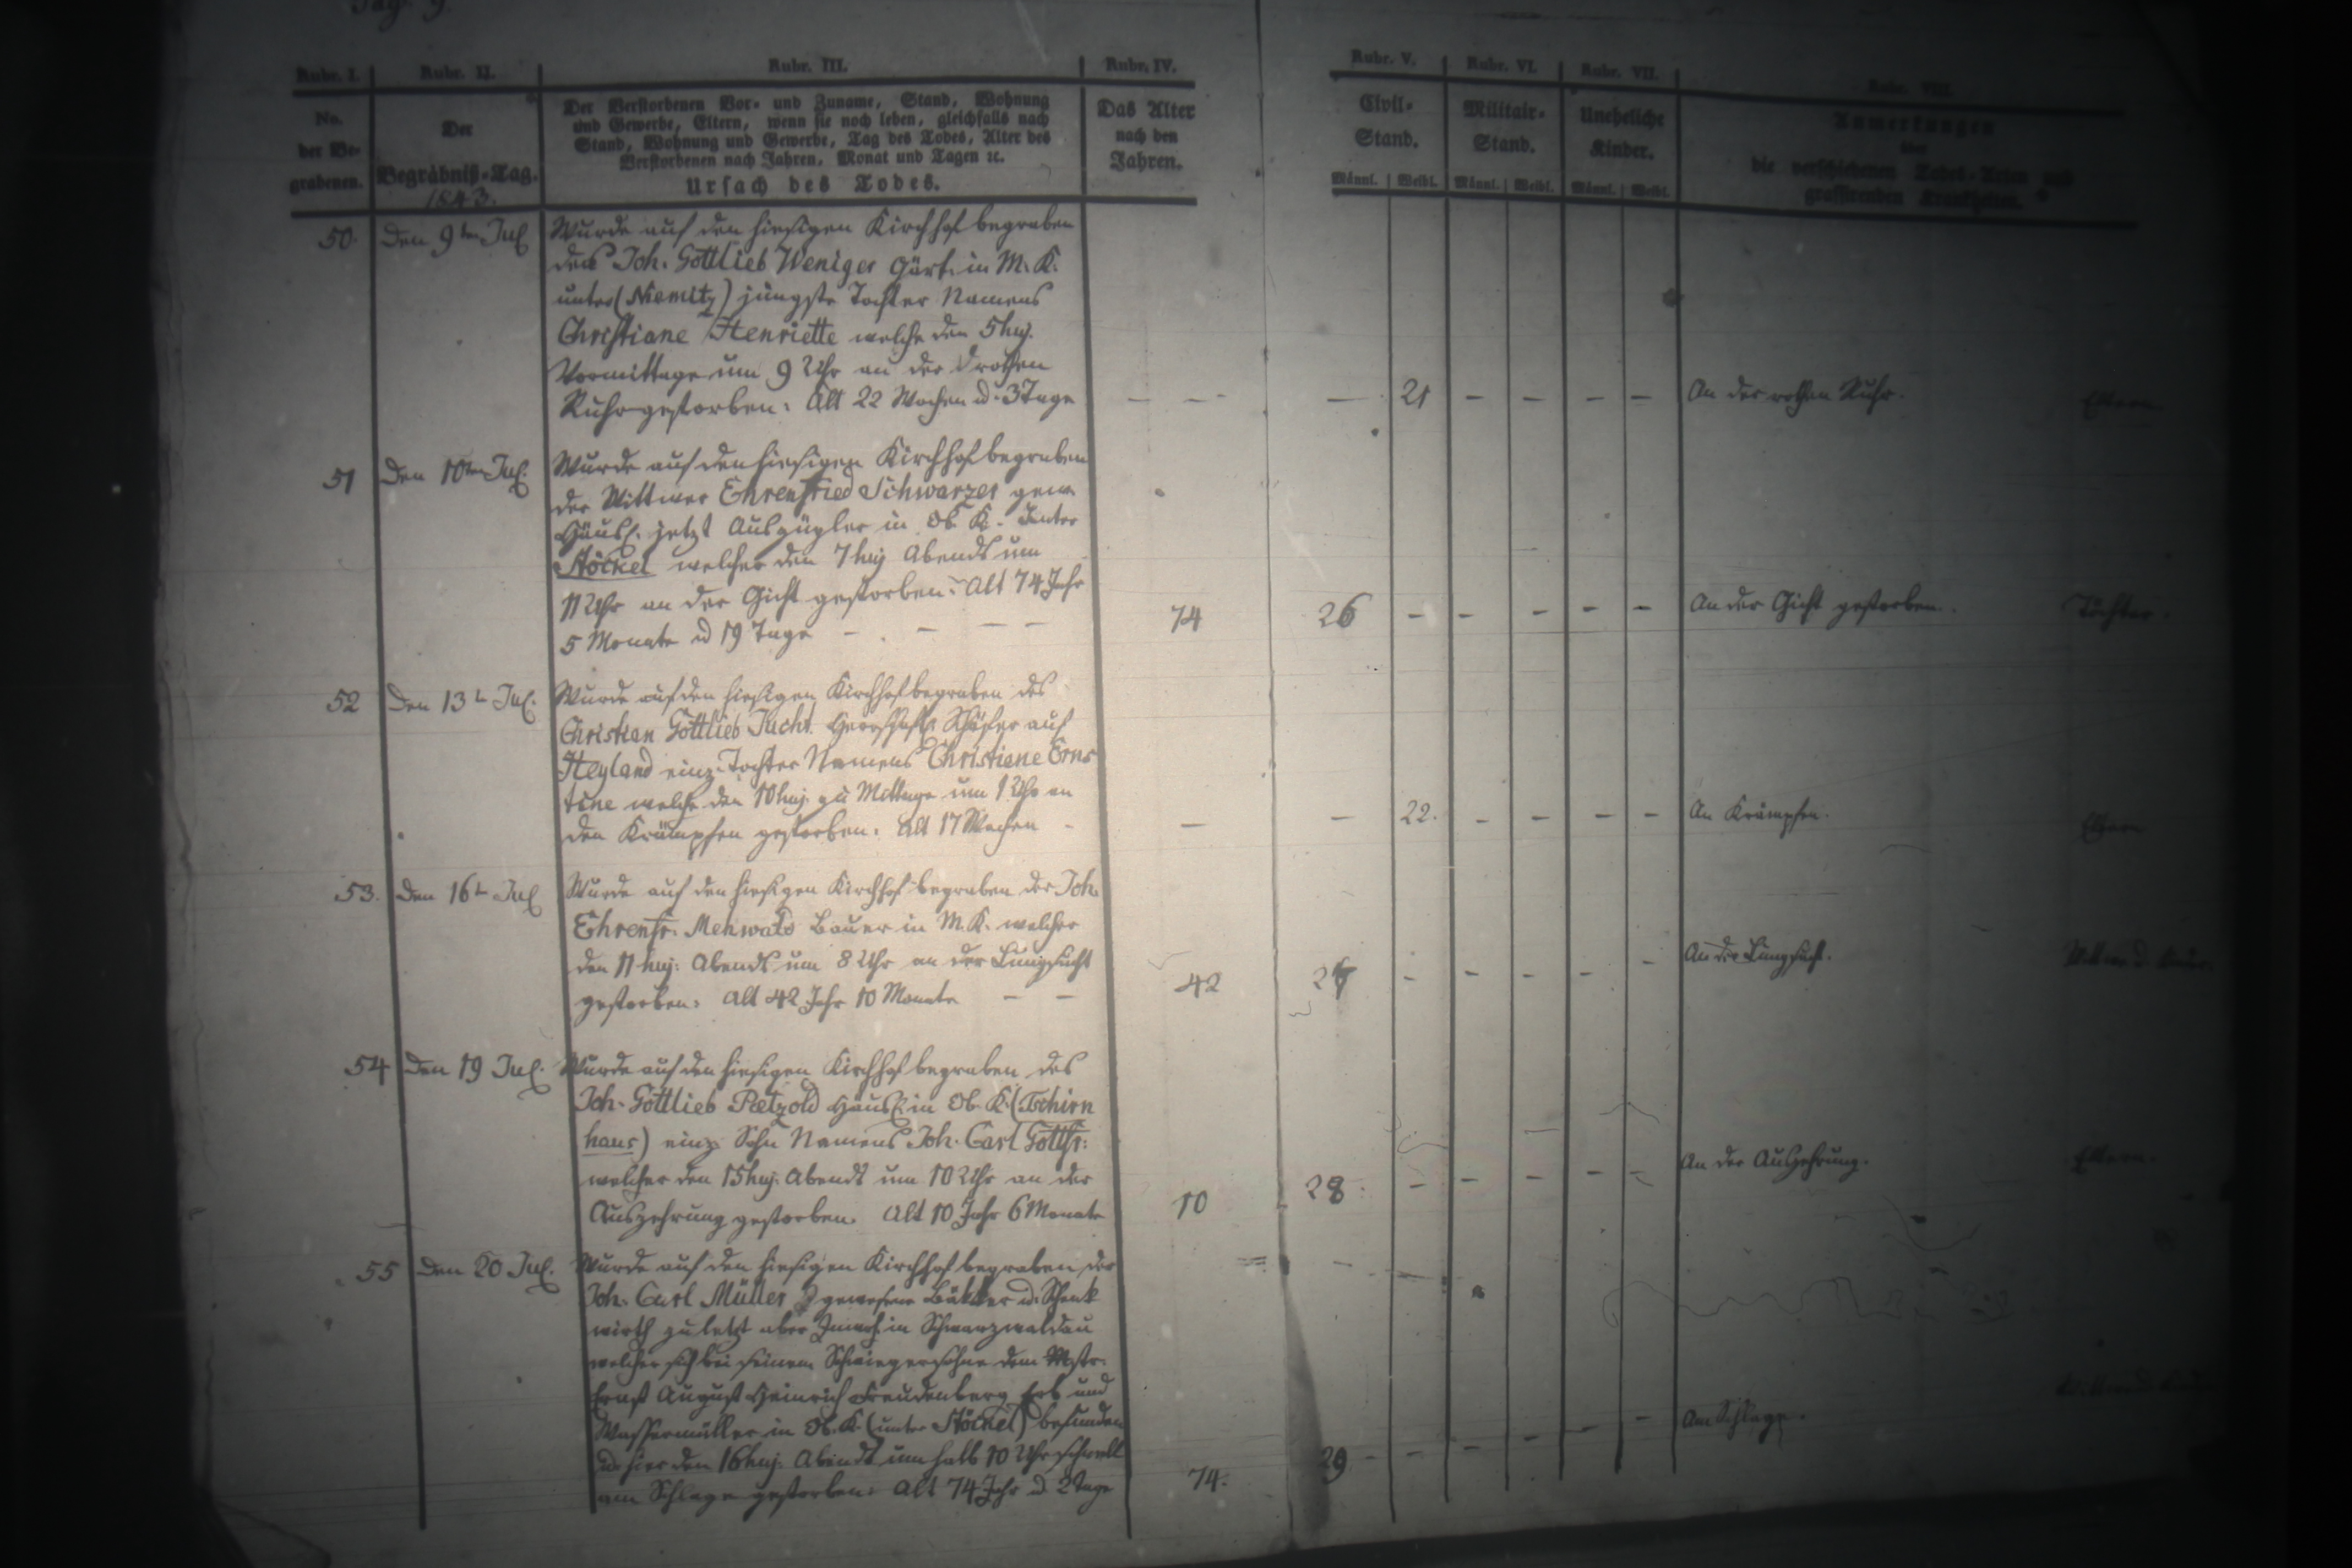 Pag. 9
Rubr. I. Rubr. II. Rubr. III. Rubr. IV. Rubr. V. Rubr. VI. Rubr. VII. Rubr. VIII.
No. der Be-grabenen.
Der Begräbniß-Tag. 1843.
Der Verstorbenen Vor- und Zuname, Stand, Wohnung
und Gewerbe, Eltern, wenn sie noch leben, gleichfalls nach
Stand, Wohnung und Gewerbe, Tag des Todes, Alter des
Verstorbenen nach Jahren, Monat und Tagen ꝛc.
Ursach des Todes.
Das Alter
nach den
Jahren.
Civil-
Stand.
Militair-
Stand.
Uneheliche
Kinder.
Anmerkungen
über
die verschiedenen Todes-Arten und
grassirenden Krankheiten.
Männl. Weibl. Männl. Weibl. Männl. Weibl.
50. Den 9ten Jul. Wurde auf den hiesigen Kirchhof begraben
des Joh. Gottlieb Weniger Gärt. in M. K.
unter (Niemitz) jüngste Tochter Namens
Christiane Henriette welche den 5 huj.
Vormittage um 9 Uhr an der rothen
Ruhr gestorben: Alt 22 Wochen u. 3 Tage — — — 21 — — — — An der rothen Ruhr. Eltern.
51 Den 10ten Jul. Wurde auf den hiesigen Kirchhof begraben
der Wittwer Ehrenfried Schwarzer gew.
Häusl. jetzt Auszügler in Ob. K. Unter
Stöckel welcher den 7 huj Abends um
11 Uhr an der Gicht gestorben: Alt 74 Jahr
5 Monate u 19 Tage — . — — — 74 26 — — — — — An der Gicht gestorben. Töchter.
52 Den 13t. Jul. Wurde auf den hiesigen Kirchhof begraben des
Christian Gottlieb Jucht. Herrschaftl. Schäfer auf
Heyland einz. Tochter Namens Christiane Erns
tine welche den 10 huj. zu Mittage um 1 Uhr an
den Krämpfen gestorben: Alt 17 Wochen — — — 22. — — — — An Krämpfen. Eltern
53. Den 16t. Jul Wurde auf den hiesigen Kirchhof begraben der Joh.
Ehrenfr. Mehwald Bauer in M. K. welcher
den 11 huj: Abends um 8 Uhr an der Lungsucht
gestorben: Alt 42 Jahr 10 Monate — — 42 27 — — — — — An der Lungsucht.
54 Den 19 Jul. Wurde auf den hiesigen Kirchhof begraben des
Joh. Gottlieb Pätzold Häusl. in Ob. K. (Tschirn
haus) einz. Sohn Namens Joh. Carl Gottfr:
welcher den 15 huj. Abends um 10 Uhr an der
Auszehrung gestorben. Alt 10 Jahr 6 Monate 10 28. — — — — — An der Auszehrung. Eltern.
55 Den 20 Jul. Wurde auf den hiesigen Kirchhof begraben der
Joh. Carl Müller gewesene Bäkker u. Schenk
wirth zuletzt aber Inwoh. in Schwarzwaldau
welcher sich bei seinem Schwiegersohne dem Mstr.
Ernst August Heinrich Freudenberg Erb und
Wassermüller in Ob. K. (unter Stöckel) befunden
u. hier den 16 huj: Abends um halb 10 Uhr schnell
am Schlage gestorben: Alt 74 Jahr u 2 Tage 74. 29 — — — — — Am Schlage.